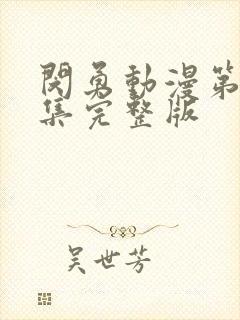 閃勇動漫第
集完整版
吴世芳